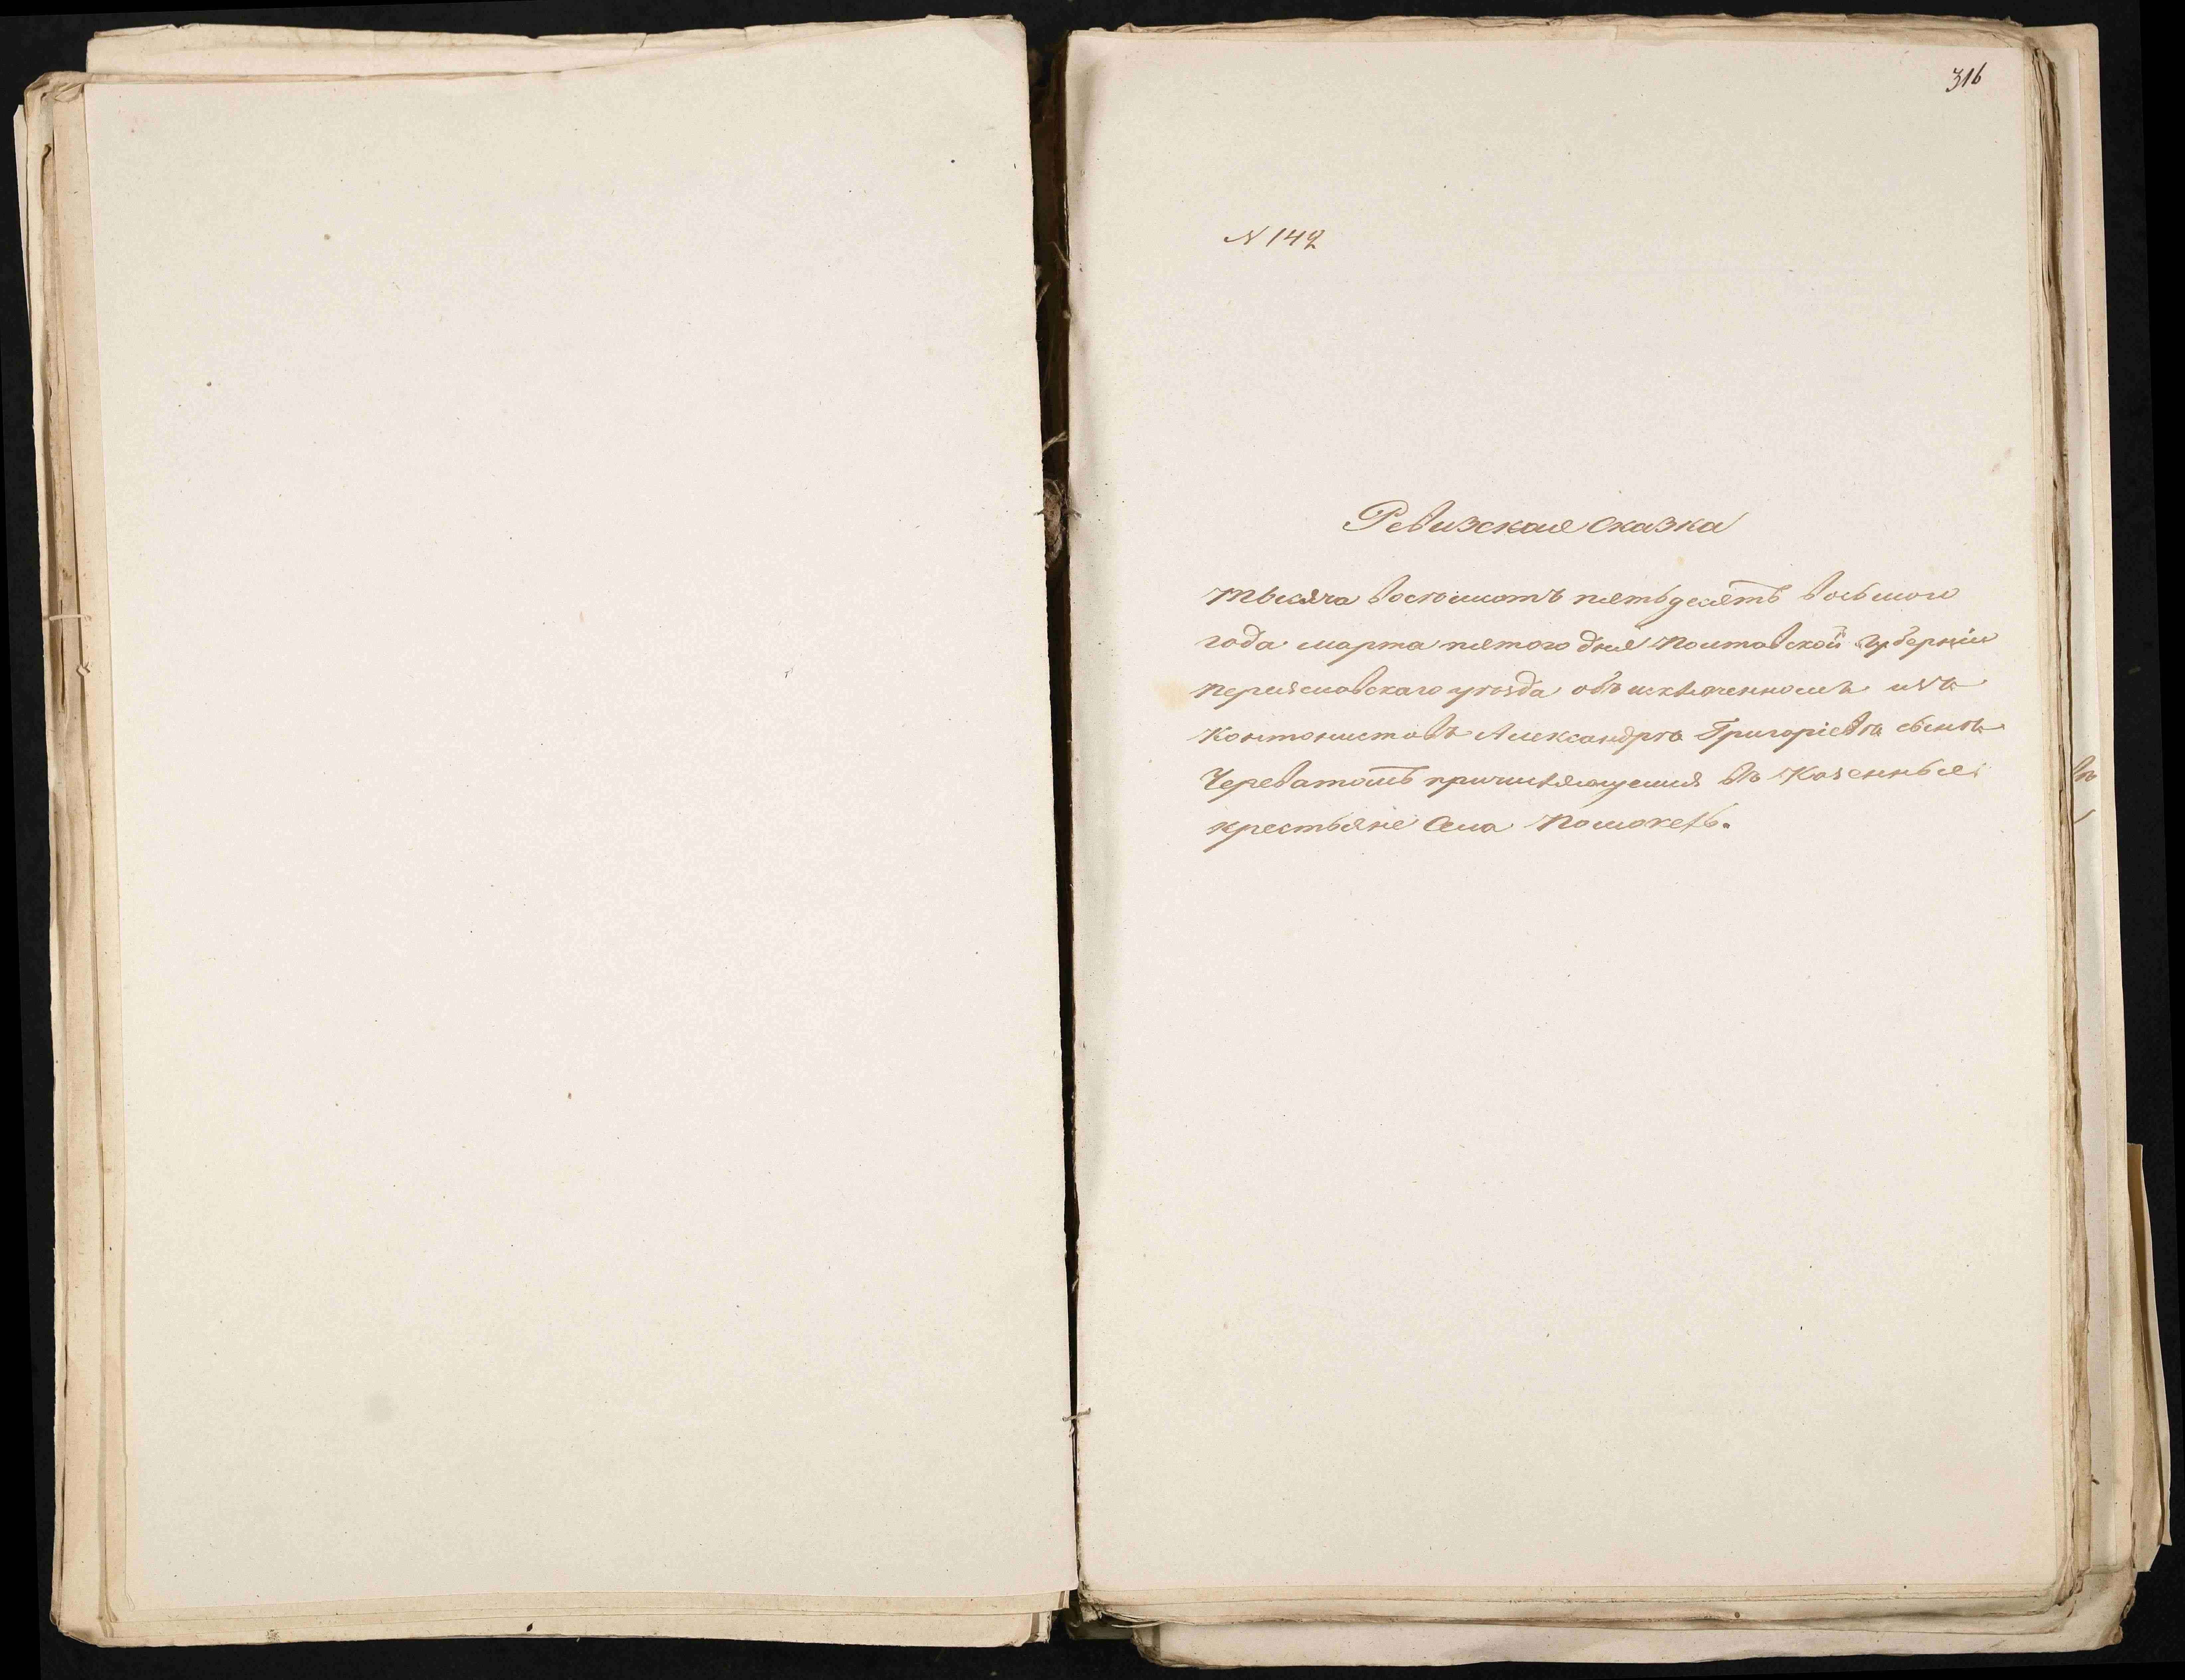 316
N 142
Ревизская сказка
тысяча восемьсотъ пятьдесятъ восьмого
года марта пятого дня Полтавской губерніи
Переяславскаго уѣзда объ исключенномъ изъ
Кантонистовъ Александрѣ Григоріевѣ сынѣ
Череватомъ причисляющемся въ Казенные
крестьяне Села